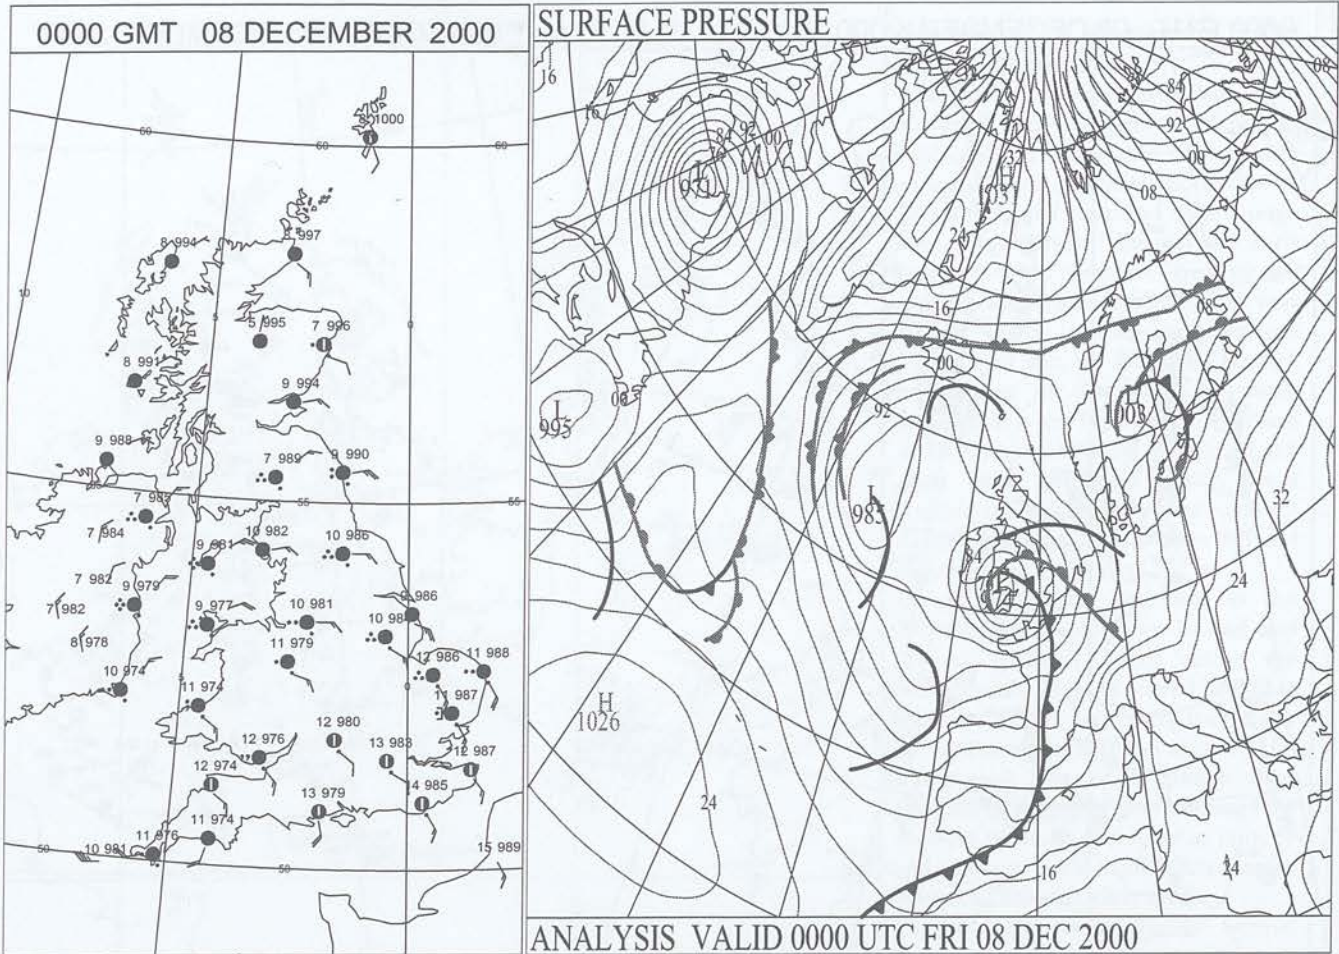 0000 GMT 08 DECEMBER 2000
60
60
60
8 994
997
10
5
5 995
7 996
0
8 991
9 994
9 988
7 989
9 990
55
55
7 984
10 982
9 981
10 986
7 982
9 979
7 982
9 977
10 981
9 986
8 978
11 979
12 986
11 988
10 974
5
0
11 974
11 987
12 980
12 976
13 983
12 987
12 974
13 979
14 985
11 974
11 976
50
10 981
50
15 989
SURFACE PRESSURE
16
08
16
84
84
92
92
00
00
L
971
32
H
1031
08
24
16
08
00
00
L
995
92
L
1003
L
985
32
84
24
H
1026
24
16
24
ANALYSIS VALID 0000 UTC FRI 08 DEC 2000